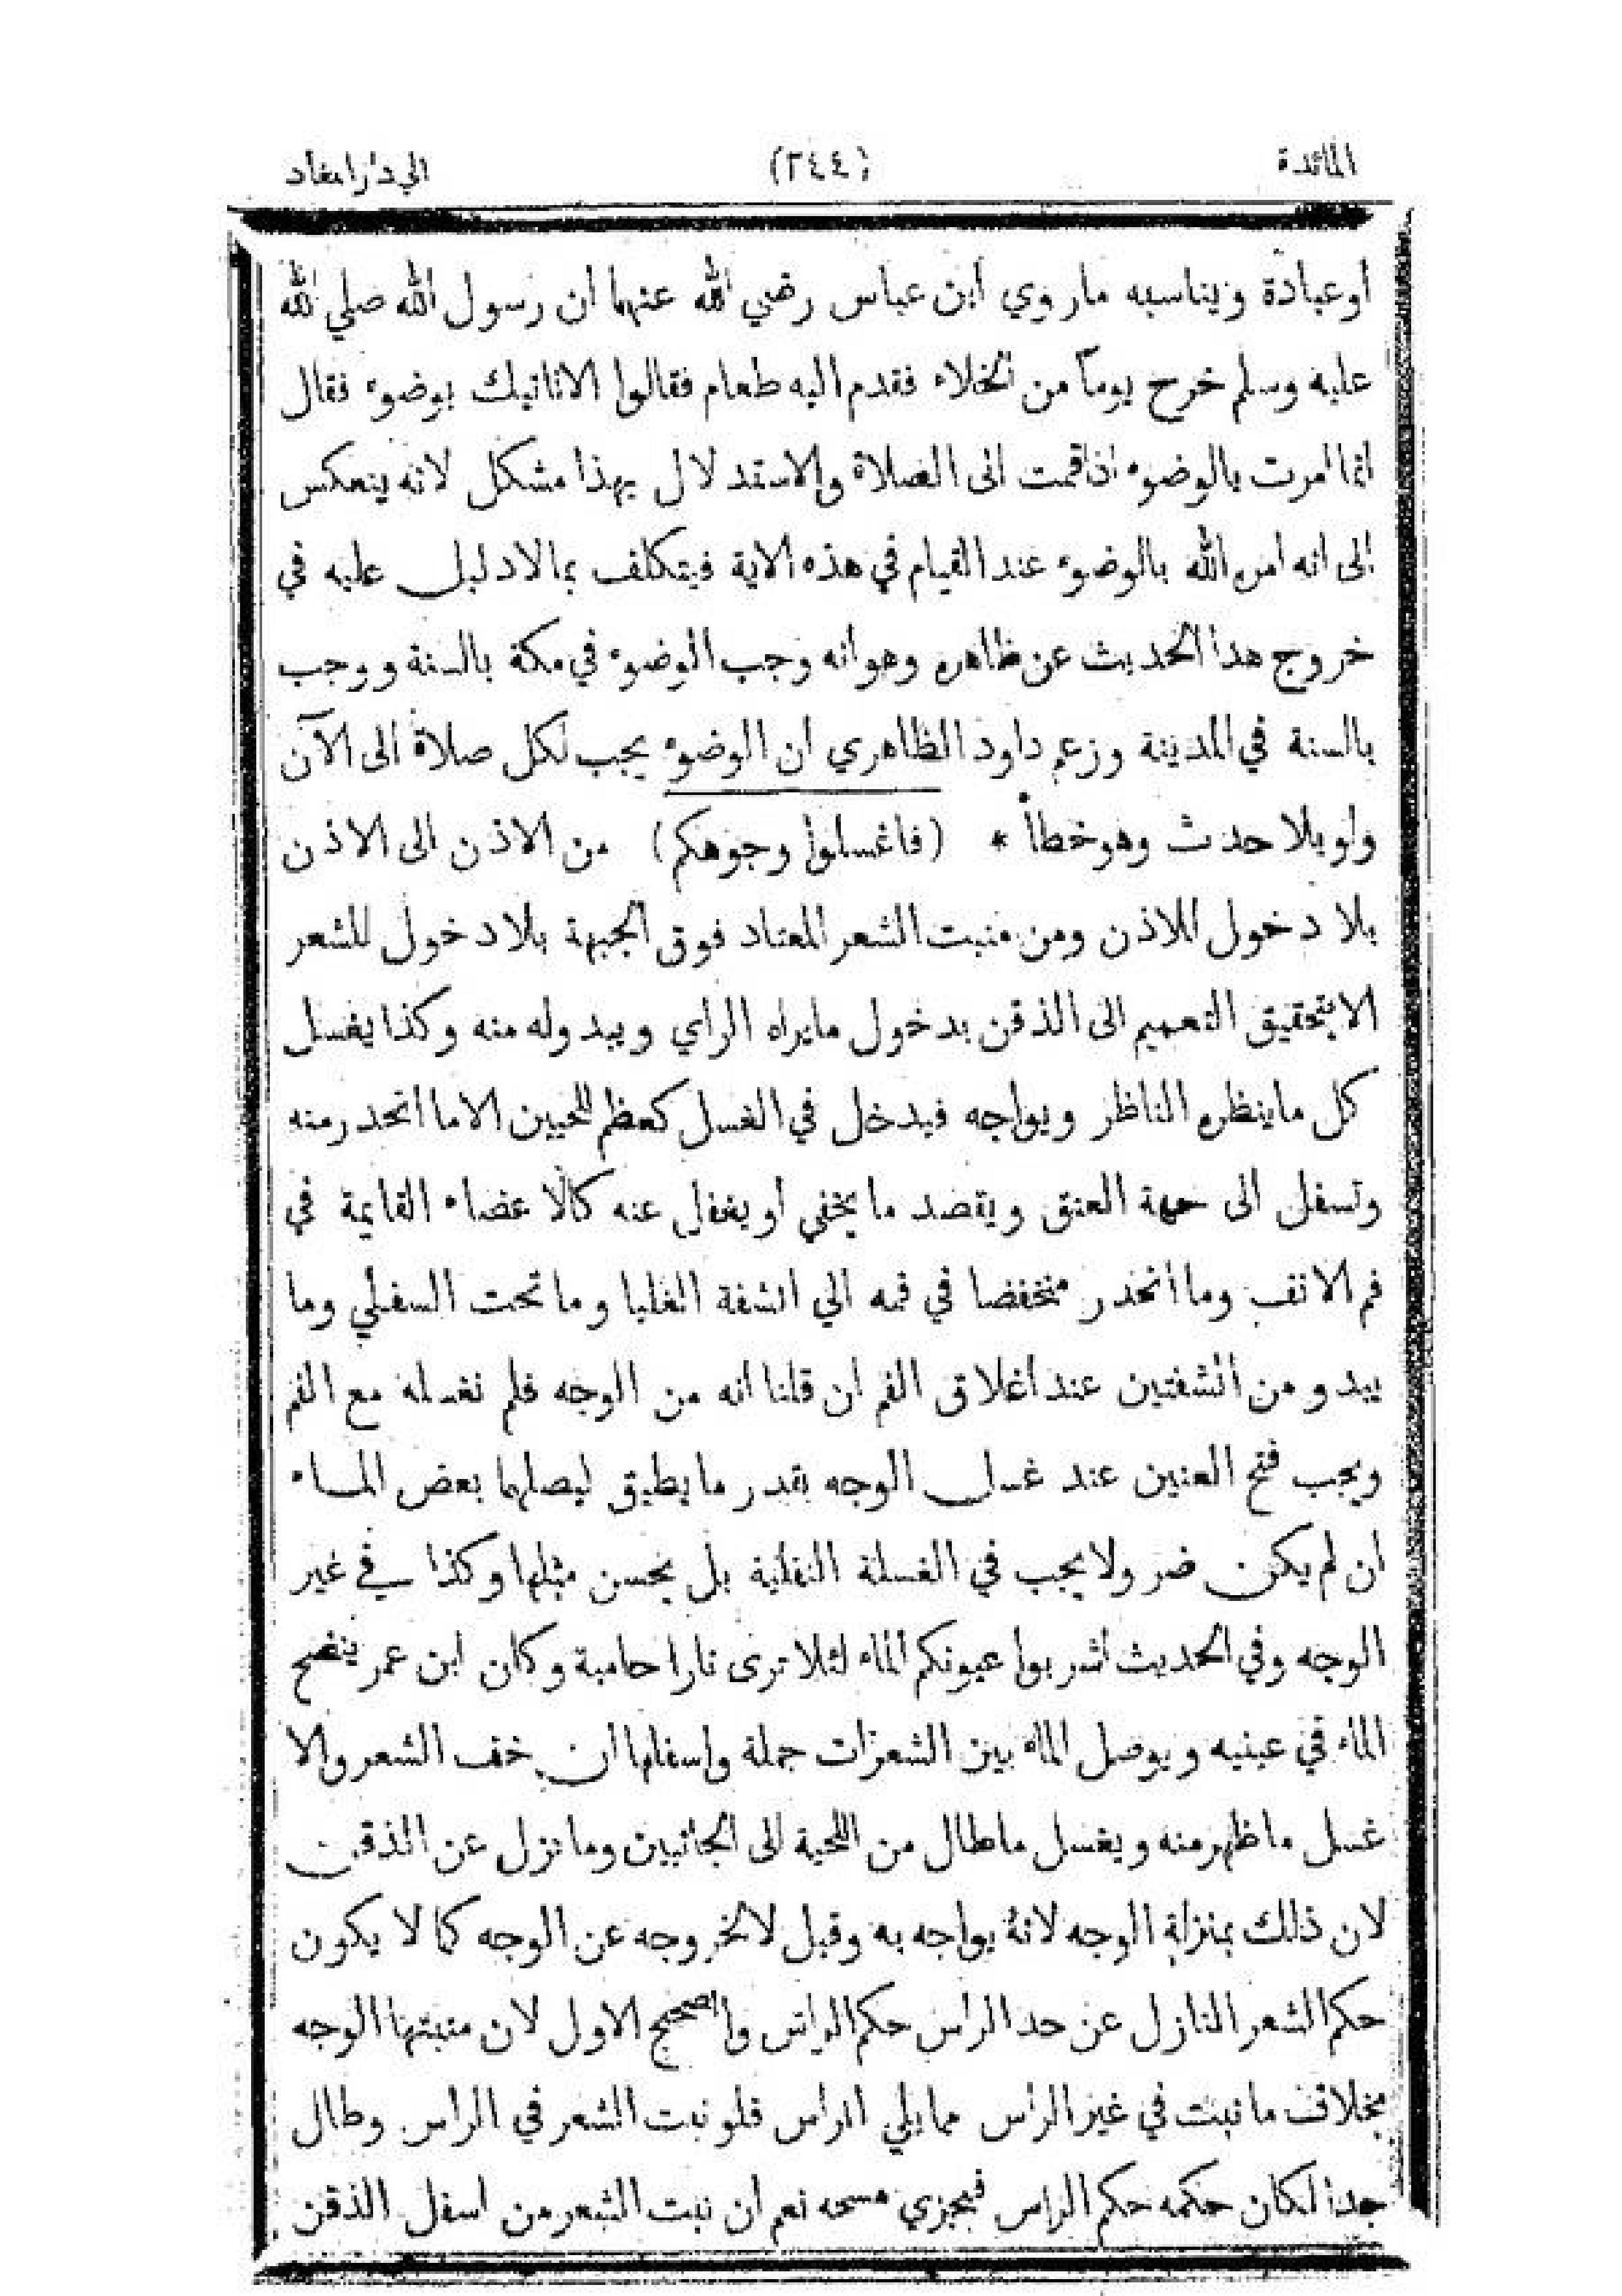 المائدة (٢٤٤) الى دار المعاد
اوعبادة ويناسبه ماروي ابن عباس رضي الله عنهما ان رسول الله صلي الله
عليه وسلم خرج يوماً من الخلاء فقدم اليه طعام فقالوا الاناتيك بوضوء فقال
انما امرت بالوضوء اذا قمت الى الصلاة والاستدلال بهذا مشكل لانه ينعكس
الى انه امره الله بالوضوء عند القيام في هذه الاية فيتكلف بمالادليل عليه في
خروج هذا الحديث عن ظاهره وهوانه وجب الوضوء في مكة بالسنة ووجب
بالسنة في المدينة وزعم داود الظاهري ان الوضوء يجب لكل صلاة الى الآن
ولوبلا حدث وهوخطأ * (فاغسلوا وجوهكم) من الاذن الى الاذن
بلا دخول للاذن ومن منبت الشعر المعتاد فوق الجبهة بلا دخول للشعر
الا بتحقيق التعميم الى الذقن بدخول مايراه الراي ويبدوله منه وكذا يغسل
كل ماينظره الناظر ويواجه فيدخل في الغسل كعظم اللحيين الا ما انحدر منه
وتسفل الى جهة العنق ويقصد ما يخفي او يغفل عنه كالا عضاء القايمة في
فم الانف وما انحدر منخفضا في فيه الي الشفة العليا وما تحت السفلي وما
يبدو من الشفتين عند اغلاق الفم ان قلنا انه من الوجه فلم نغسله مع الفم
ويجب فتح العنين عند غسل الوجه بقدر ما يطيق ليصلهما بعض الماء
ان لم يكن ضر ولا يجب في الغسلة النفلية بل يحسن مثلها وكذا في غير
الوجه وفي الحديث اشربوا عيونكم الماء لئلا ترى نارا حامية وكان ابن عمر ينضح
الماء في عينيه ويوصل الماء بين الشعرات جملة واسفلها ان خف الشعر والا
غسل ماظهرمنه ويغسل ماطال من اللحية الى الجانبين ومانزل عن الذقن
لان ذلك بمنزلة الوجه لانه يواجه به وقيل لالخروجه عن الوجه كما لا يكون
حكم الشعر النازل عن حد الراس حكم الراس والصحيح الاول لان منبتها الوجه
بخلاف ما نبت في غير الراس مما يلي الراس فلو نبت الشعر في الراس وطال
جدا لكان حكمه حكم الراس فيجزي مسحه نعم ان نبت الشعر من اسفل الذقن